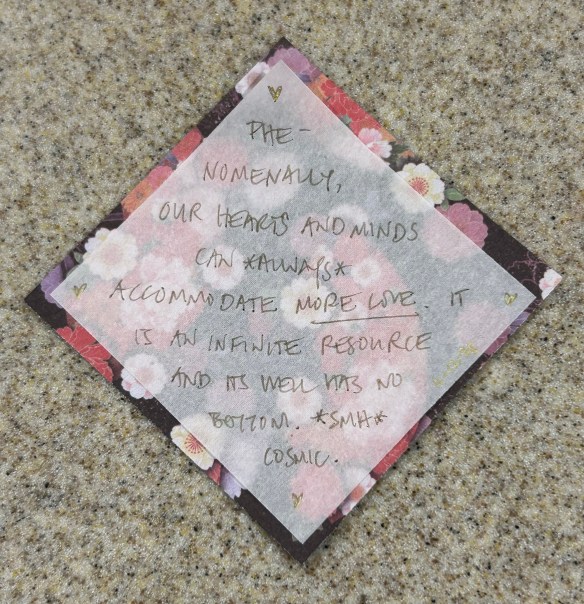 PHE-
NOMENALLY,
OUR HEARTS AND MINDS
CAN *ALWAYS*
ACCOMMODATE MORE LOVE. IT
IS AN INFINITE RESOURCE
AND ITS WELL HAS NO
BOTTOM. *SMH*
COSMIC.